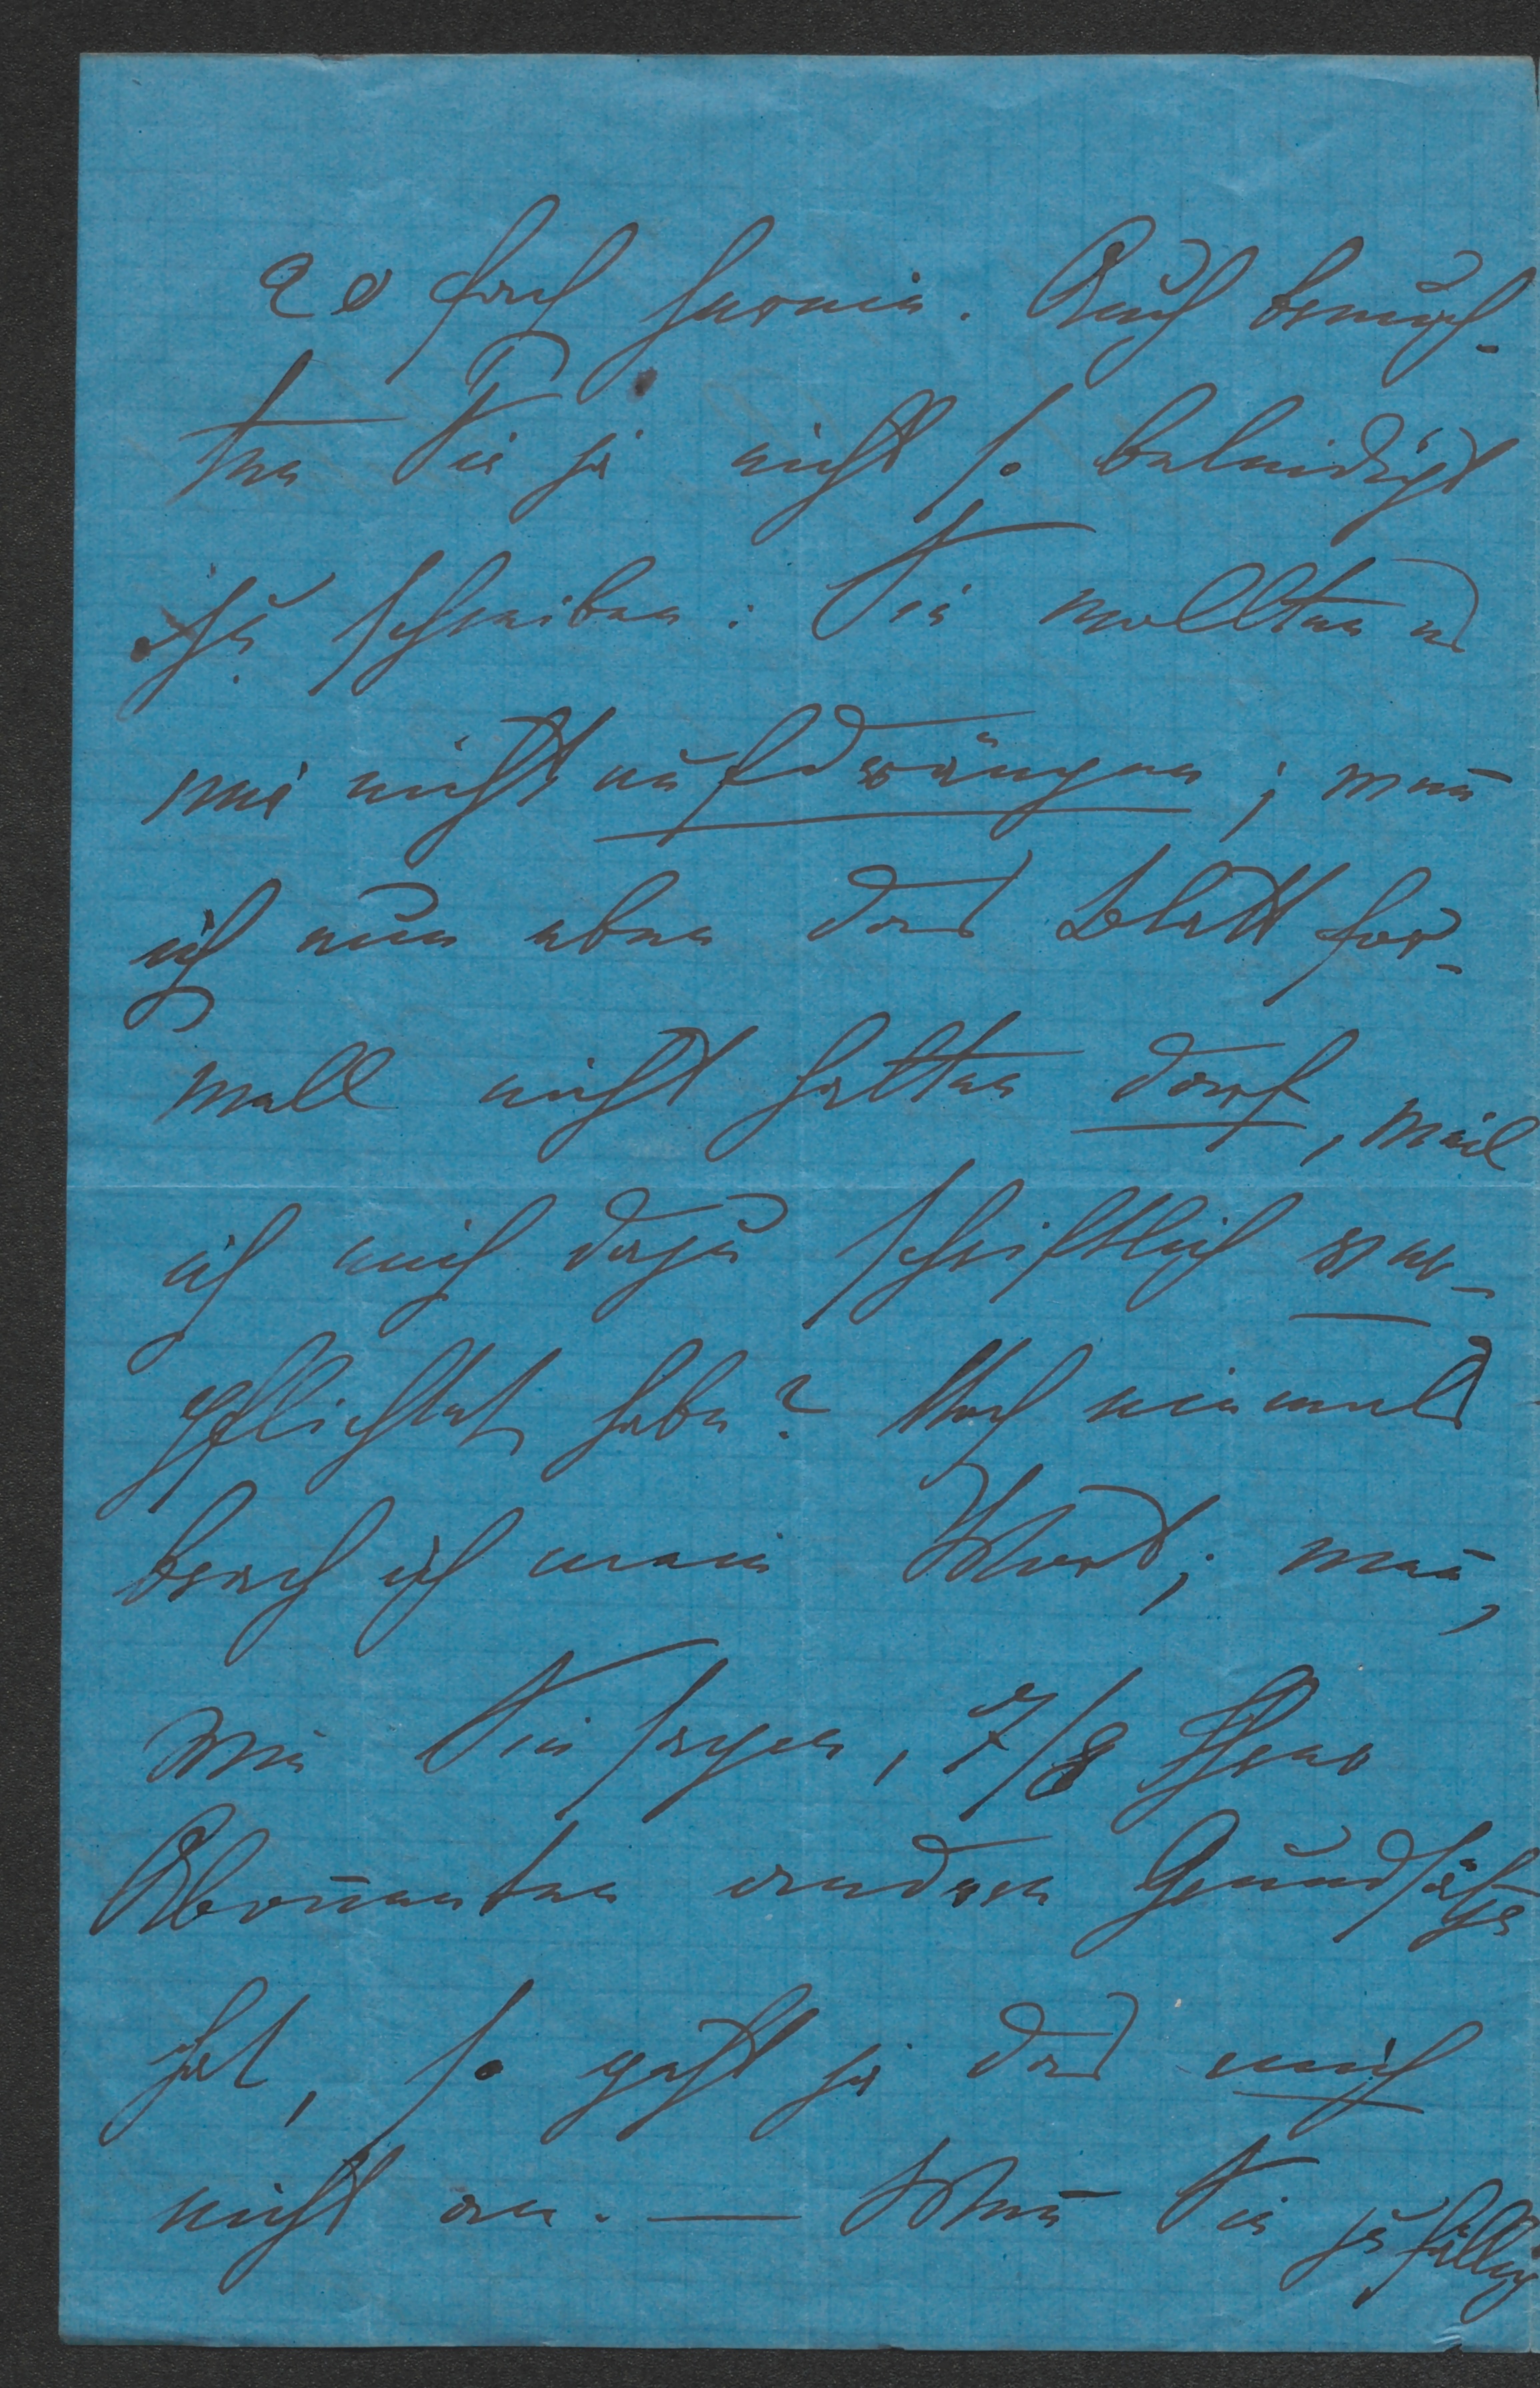 20 fach herein. Auch brauch-
ten Sie ja nicht so beleidigt
zu schreiben: Sie wollten es
mir nicht aufdrängen; wenn
ich nun eben das Blatt for-
mell nicht halten darf, weil
ich mich dazu schriftlich ver-
pflichtet habe? Noch niemals
brach ich mein Wort; wenn,
wie Sie sagen, 7/8 Ihrer
Abonnenten andere Grundsätze
hat, so geht ja das mich
nicht an. — Wenn Sie zufällig